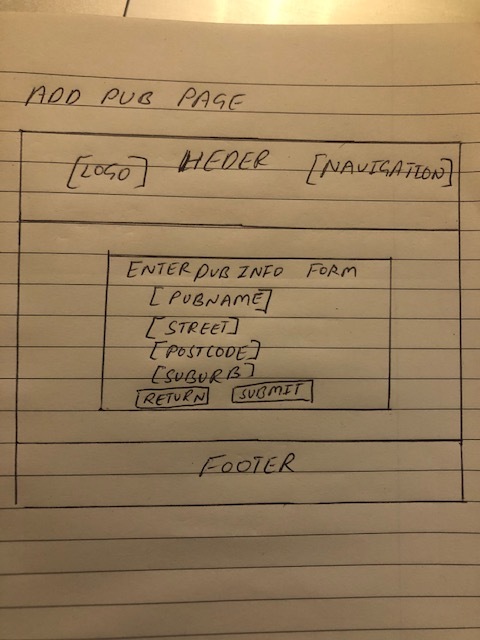 ADD PUB PAGE
[LOGO] HEDER [NAVIGATION]
ENTER PUB INFO FORM
[PUBNAME]
[STREET]
[POSTCODE]
[SUBURB]
RETURN SUBMIT
FOOTER